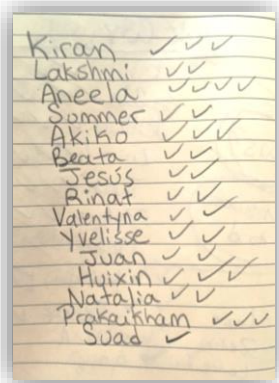 Kiran ✓ ✓ ✓
Lakshmi ✓ ✓
Aneela ✓ ✓ ✓ ✓
Sommer ✓ ✓
Akiko ✓ ✓ ✓
Beata ✓ ✓
Jesús ✓ ✓
Rinat ✓ ✓
Valentyna ✓ ✓
Yvelisse ✓ ✓
Juan ✓ ✓
Huixin ✓ ✓ ✓
Natalia ✓ ✓
Prakaikham ✓ ✓ ✓
Suad ✓